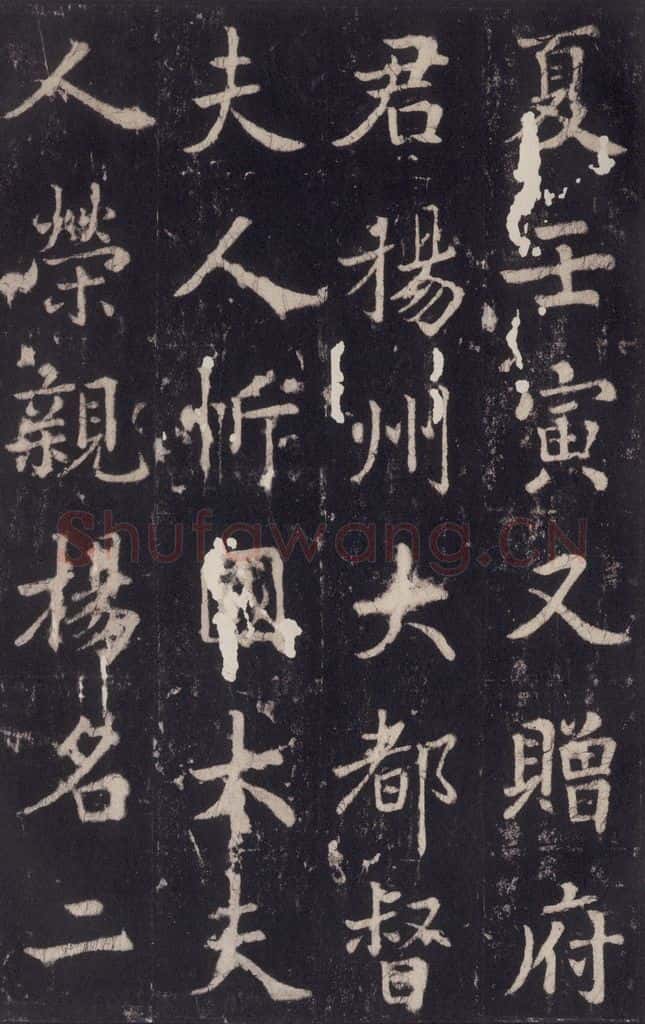 夏壬寅又贈府
君揚州大都督
夫人忻國太夫
人榮親揚名二
Shufawang.CN